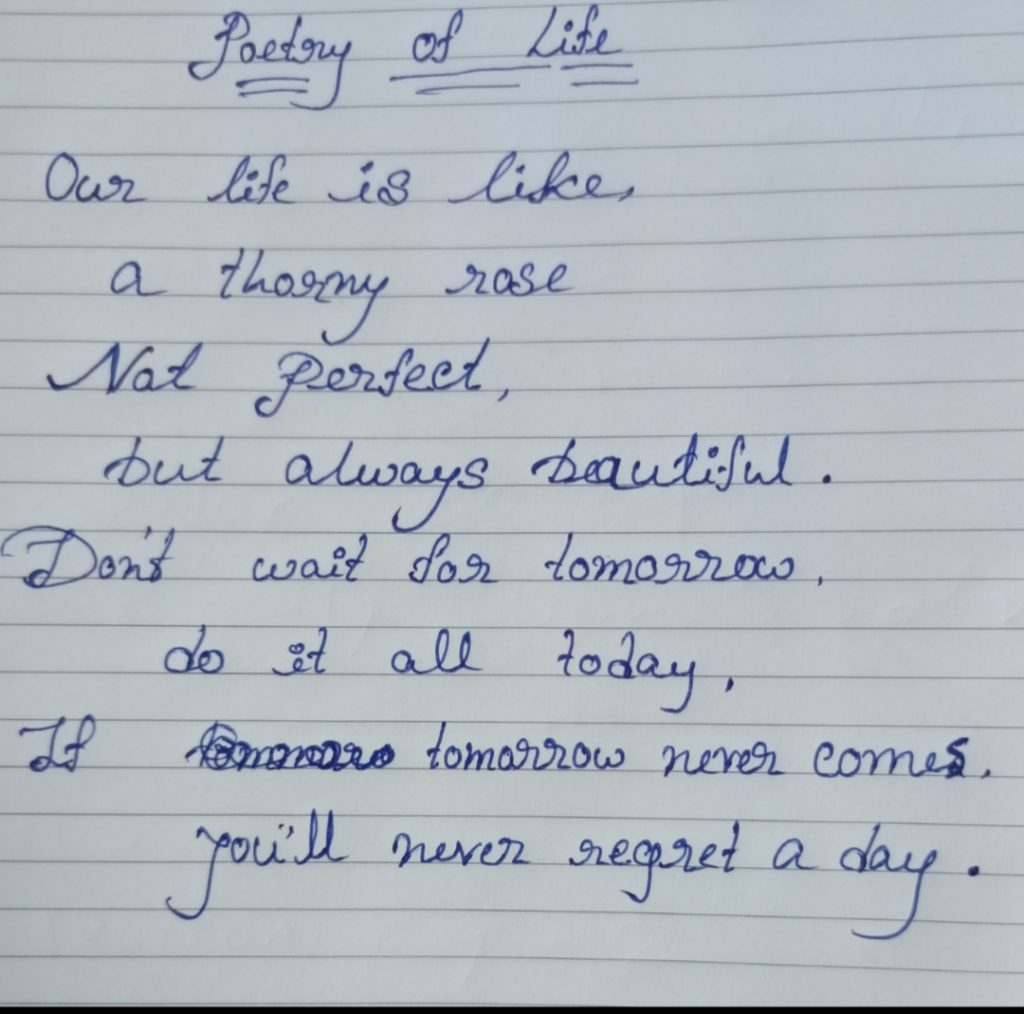 Poetry of Life
Our life is like,
a thorny rose
Not perfect,
but always beautiful.
Don't wait for tomorrow,
do it all today,
If tomorrow never comes,
you'll never regret a day.